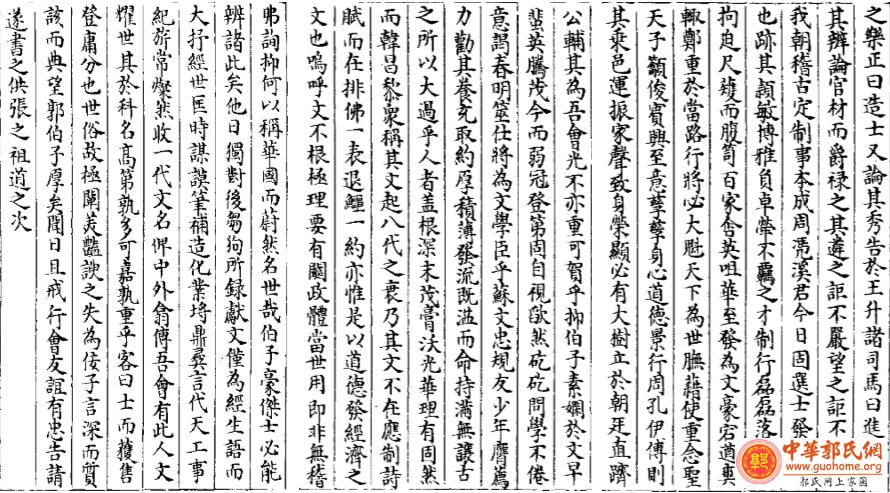 之樂正曰造士又論其秀告於王升諸司馬曰進
其辨論官材而爵祿之其遴之詎不嚴望之詎不
我朝稽古定制事本成周馮溪君今日固選士發
也跡其穎敏博雅負卓犖不羈之才制行磊磊落
拘迫尺矱而腹笥百家含英咀華至發為文豪宕遒
輙鄭重於當路行將必大魁天下為世膴藉使重念聖
天子顓俊賓興至意孳孳身心道德景行周孔伊傅則
其乘邑運振家聲致身榮顯必有大樹立於朝廷直躋
公輔其為吾會光不亦重可賀乎抑伯子素嫻於文早
蜚英騰茂今而弱冠登第固自視歉然矻矻問學不倦
意謁春明筮仕將為文學臣乎蘇文忠規友少年膺薦
力勸其養充取約厚積薄發流旣溢而命持滿無讓古
之所以大過乎人者蓋根深末茂膏沃光華理有固然
而韓昌黎衆稱其文起八代之衰乃其文不在應制詩
賦而在排佛一表退鱷一約亦惟是以道德發經濟之
文也嗚呼文不根極理要有關政體當世用即非無稽
弗詢抑何以稱華國而蔚然名世哉伯子豪傑士必能
辨諸此矣他日獨對後芻狗所錄獻文僅為經生語而
大抒經世匡時謀謨筆補造化業埒鼎彛言代天工事
紀旂常燦然收一代文名俾中外翕傳吾會有此人文
耀世其於科名髙第孰多可嘉孰重乎客曰士而獲售
登庸分也世俗故極闡美豔諛之失為佞子言深而質
該而典望郭伯子厚矣聞日且戒行會友誼有忠告請
遂書之供張之祖道之次
中華郭氏網
www.guohome.org
郭氏网上家园